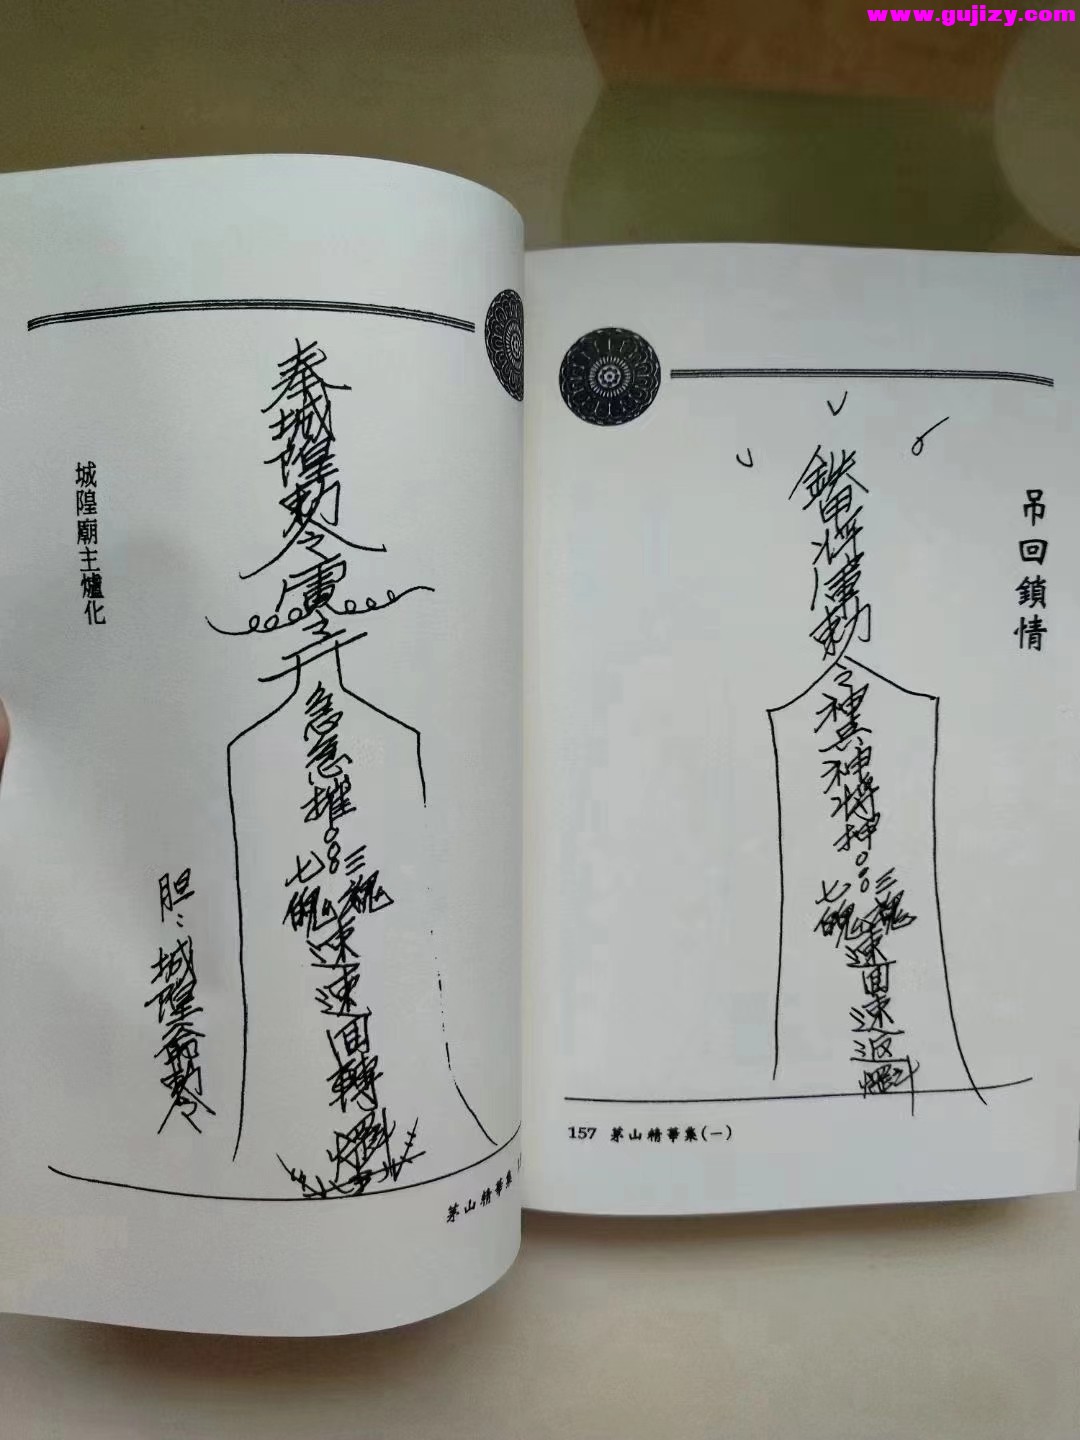 www.gujizy.com
吊回鎖情
勅令
神兵神將押
三魂
七魄
速回速返
157 茅山精華集(一)
奉城隍勅令
急急摧
三魂
七魄
速速回轉
城隍廟主爐化
胆:城隍爺勅令
茅山精華集